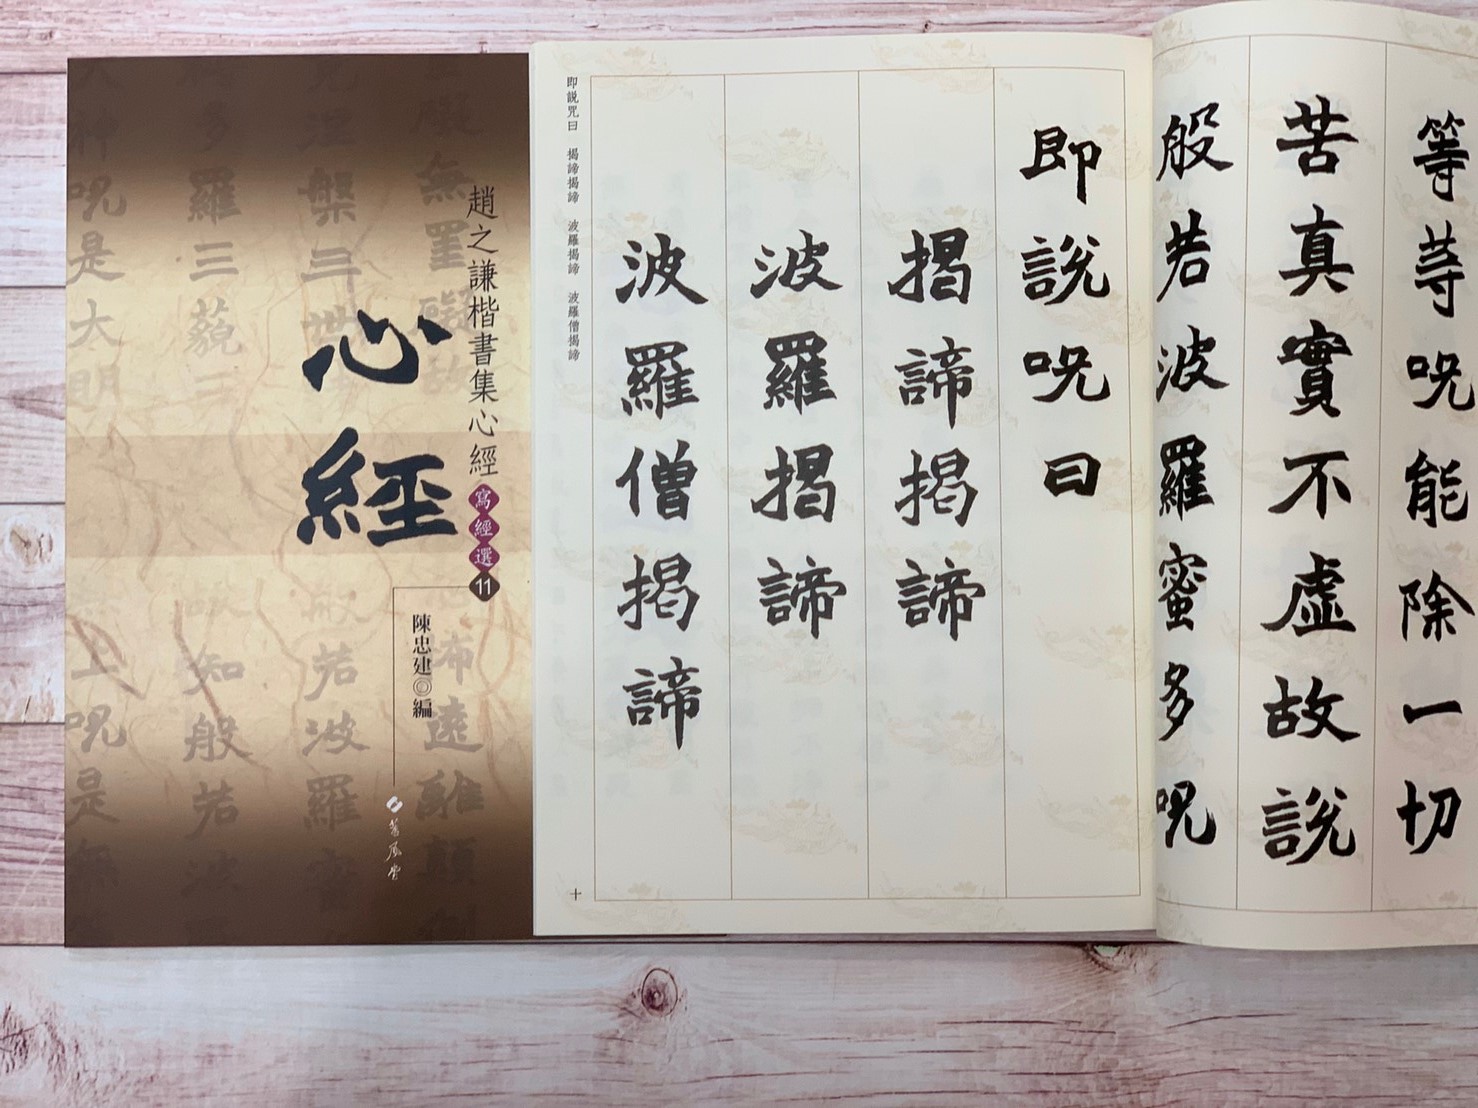 趙之謙楷書集心經
寫經選11
心經
陳忠建◎編
蕙風堂
等等呪能除一切
苦真實不虛故說
般若波羅蜜多呪
即說呪曰
揭諦揭諦
波羅揭諦
波羅僧揭諦
即說咒曰 揭諦揭諦 波羅揭諦 波羅僧揭諦
十